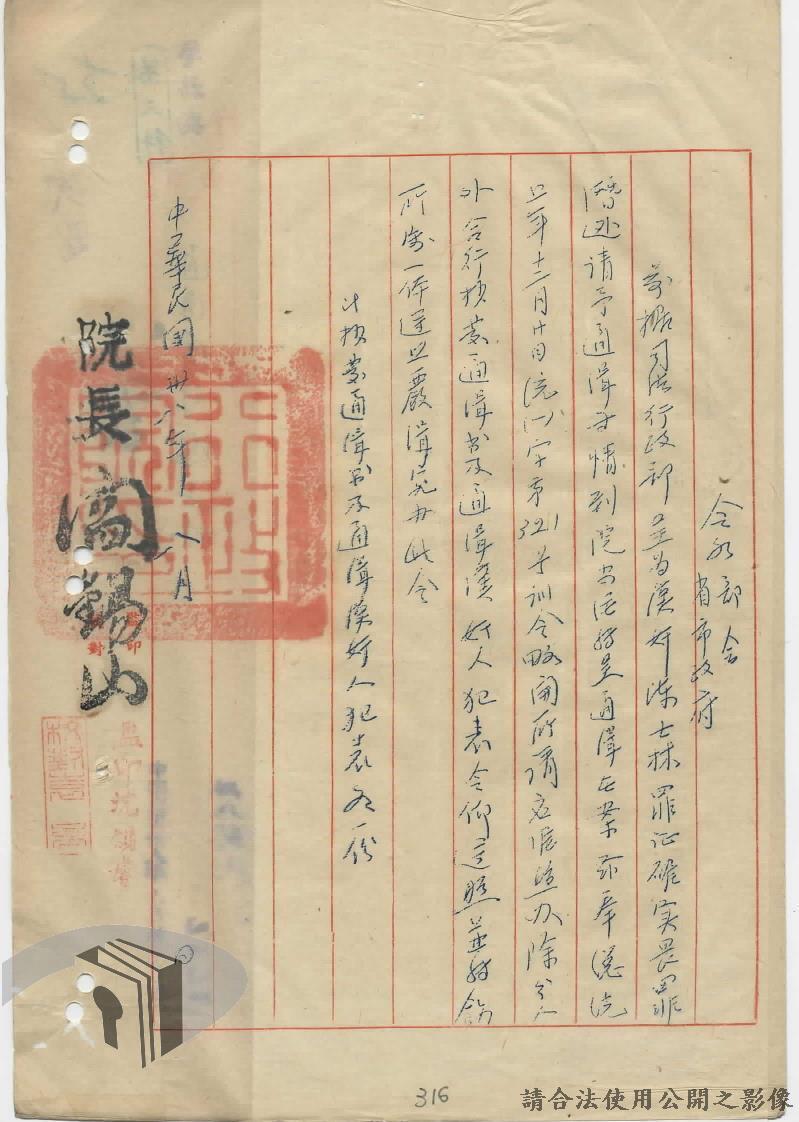 令各部會
省市政府
前據司法行政部呈為漢奸陳士林罪證確實畏罪
潛逃請予通緝等情到院當經轉呈通緝在案茲奉總統
卅七年十二月廿日統 字第321号訓令略開所請應准照办除分令
外合行抄發通緝書及通緝漢奸人犯表令仰遵照並轉飭
所屬一体遵照嚴緝究办此令
計抄發通緝書及通緝漢奸人犯表各一份
中華民國卅八年 八月
院長閻錫山
監印
校對
監印沈
316
請合法使用公開之影像